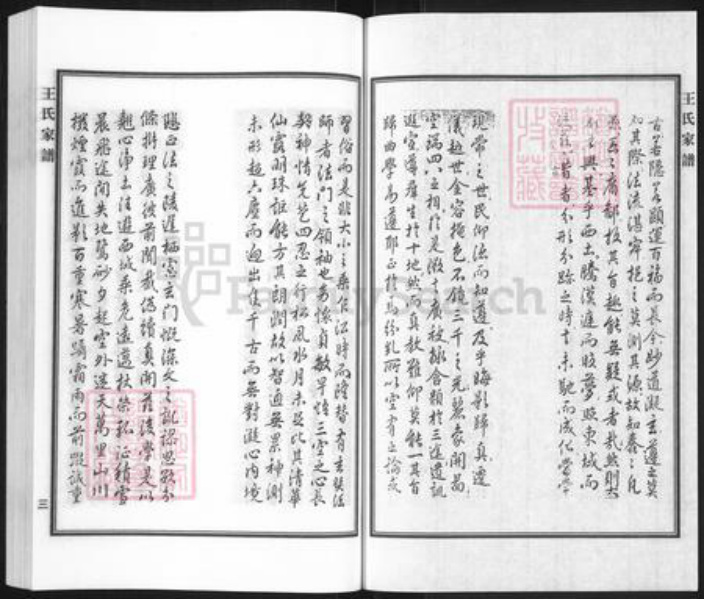 王氏家譜
古若隱若顯運百福而長今妙道凝玄遵之莫
知其際法流湛寂挹之莫測其源故知蠢蠢凡
愚區區庸鄙投其旨趣能無疑或者哉然則大
教之興基乎西土騰漢庭而皎夢照東域而
流慈昔者分形分跡之時言未馳而成化當常
現常之世民仰德而知遵及乎晦影歸真遷
儀越世金容掩色不鏡三千之光麗象開圖
空端四八之相於是微言廣被拯含類於三途遺訓
遐宣導群生於十地然而真教難仰莫能一其旨
歸曲學易遵耶正於焉紛糺所以空有之論或
習俗而是非大小之乘乍沿時而隆替有玄奘法
師者法門之領袖也幼懷貞敏早悟三空之心長
契神情先苞四忍之行松風水月未足比其清華
仙露明珠詎能方其朗潤故以智通無累神測
未形超六塵而迥出隻千古而無對凝心內境
悲正法之陵遲栖慮玄門慨深文之訛謬思欲分
條析理廣彼前聞截偽續真開茲後學是以
翹心淨土往遊西域乘危遠邁杖策孤征積雪
晨飛途間失地驚砂夕起空外迷天萬里山川
撥煙霞而進影百重寒暑躡霜雨而前蹤誠重
王氏家譜
三
FamilySearch